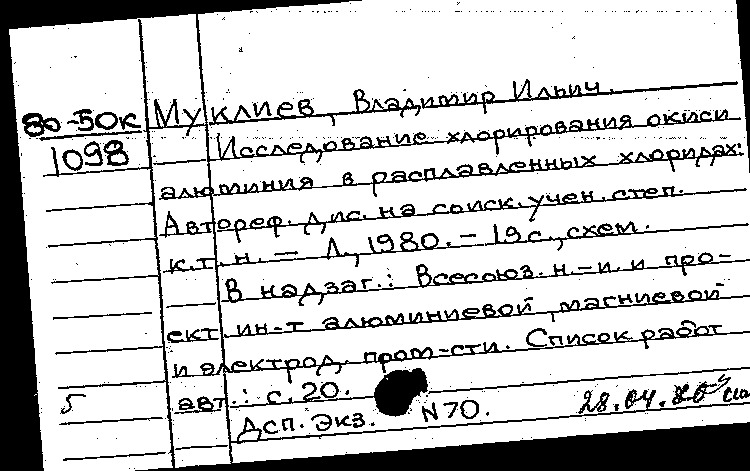 80-50к
1098
Муклиев, Владимир Ильич.
Исследование хлорирования окиси
алюминия в расплавленных хлоридах:
Автореф. дис. на соиск. учен. степ.
к.т.н. — Л., 1980. — 19с., схем.
В надзаг.: Всесоюз. н-и. и про-
ект. ин-т алюминиевой, магниевой
и электрод. пром-сти. Список работ
авт.: с. 20.
5
Дсп. Экз. N 70.
28.04.80